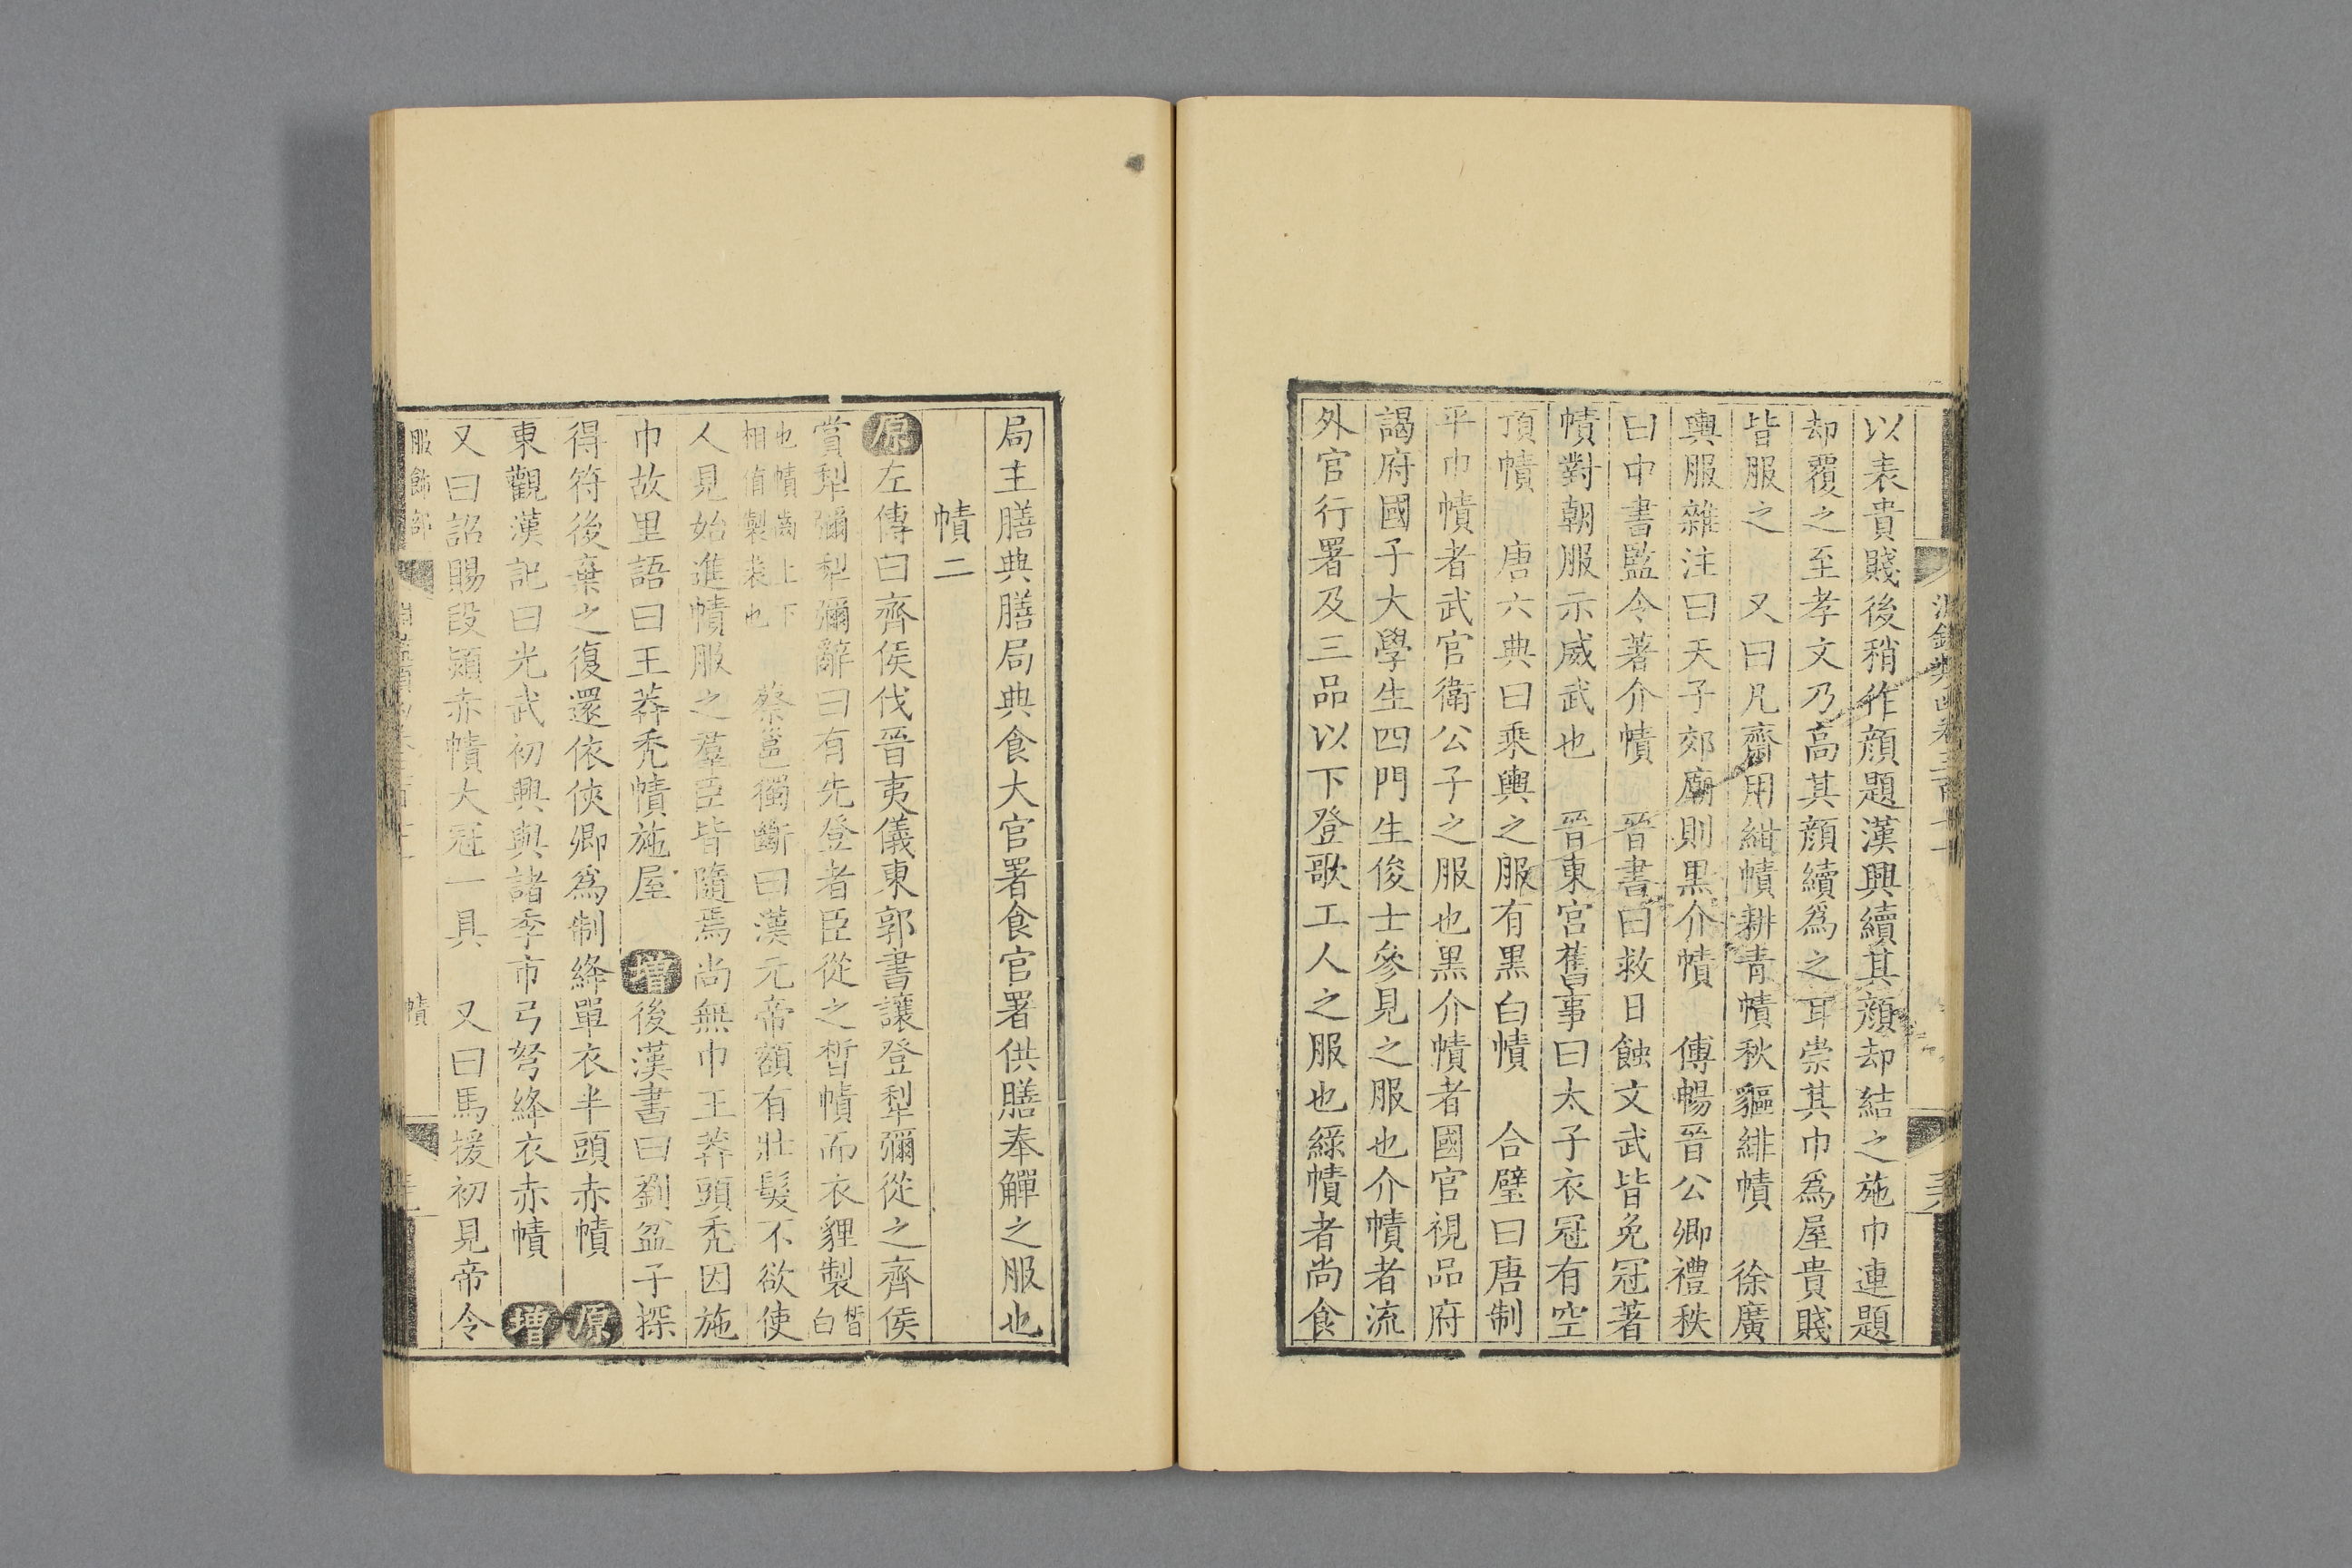 以表貴賤後稍作顔題漢興續其顔却結之施巾連題
却覆之至孝文乃高其顔續爲之耳崇其巾爲屋貴賤
皆服之　又曰凡齋用紺幘耕青幘秋貙緋幘　徐廣
輿服雜注曰天子郊廟則黒介幘　傅暢晉公卿禮秩
曰中書監令著介幘　晉書曰救日蝕文武皆免冠著
幘對朝服示威武也　晉東宫舊事曰太子衣冠有空
頂幘　唐六典曰乘輿之服有黒白幘　合璧曰唐制
平巾幘者武官衛公子之服也黒介幘者國官視品府
謁府國子大學生四門生俊士參見之服也介幘者流
外官行署及三品以下登歌工人之服也緑幘者尚食
局主膳典膳局典食大官署食官署供膳奉觶之服也
幘二
原左傳曰齊侯伐晉夷儀東郭書讓登犁彌從之齊侯
賞犁彌犁彌辭曰有先登者臣從之晳幘而衣貍製晳白
也幘齒上下相值製裘也　蔡邕獨斷曰漢元帝額有壯髮不欲使
人見始進幘服之羣臣皆隨焉尚無巾王莽頭禿因施
巾故里語曰王莽禿幘施屋　增後漢書曰劉盆子探
得符後棄之復還依俠卿爲制絳單衣半頭赤幘　原
東觀漢記曰光武初興與諸季市弓弩絳衣赤幘　增
又曰詔賜段熲赤幘大冠一具　又曰馬援初見帝令
服飾部
幘